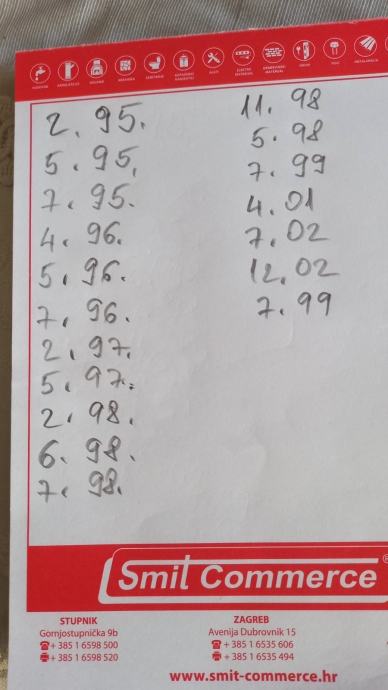 2. 95.
5. 95.
7. 95.
4. 96.
5. 96.
7. 96.
2. 97.
5. 97.
2. 98.
6. 98.
7. 98.
11. 98
5. 98
7. 99
4. 01
7. 02
12. 02
7. 99
Smit Commerce®
STUPNIK
Gornjostupnička 9b
☎ + 385 1 6598 500
+ 385 1 6598 520
ZAGREB
Avenija Dubrovnik 15
☎ + 385 1 6535 606
+ 385 1 6535 494
www.smit-commerce.hr